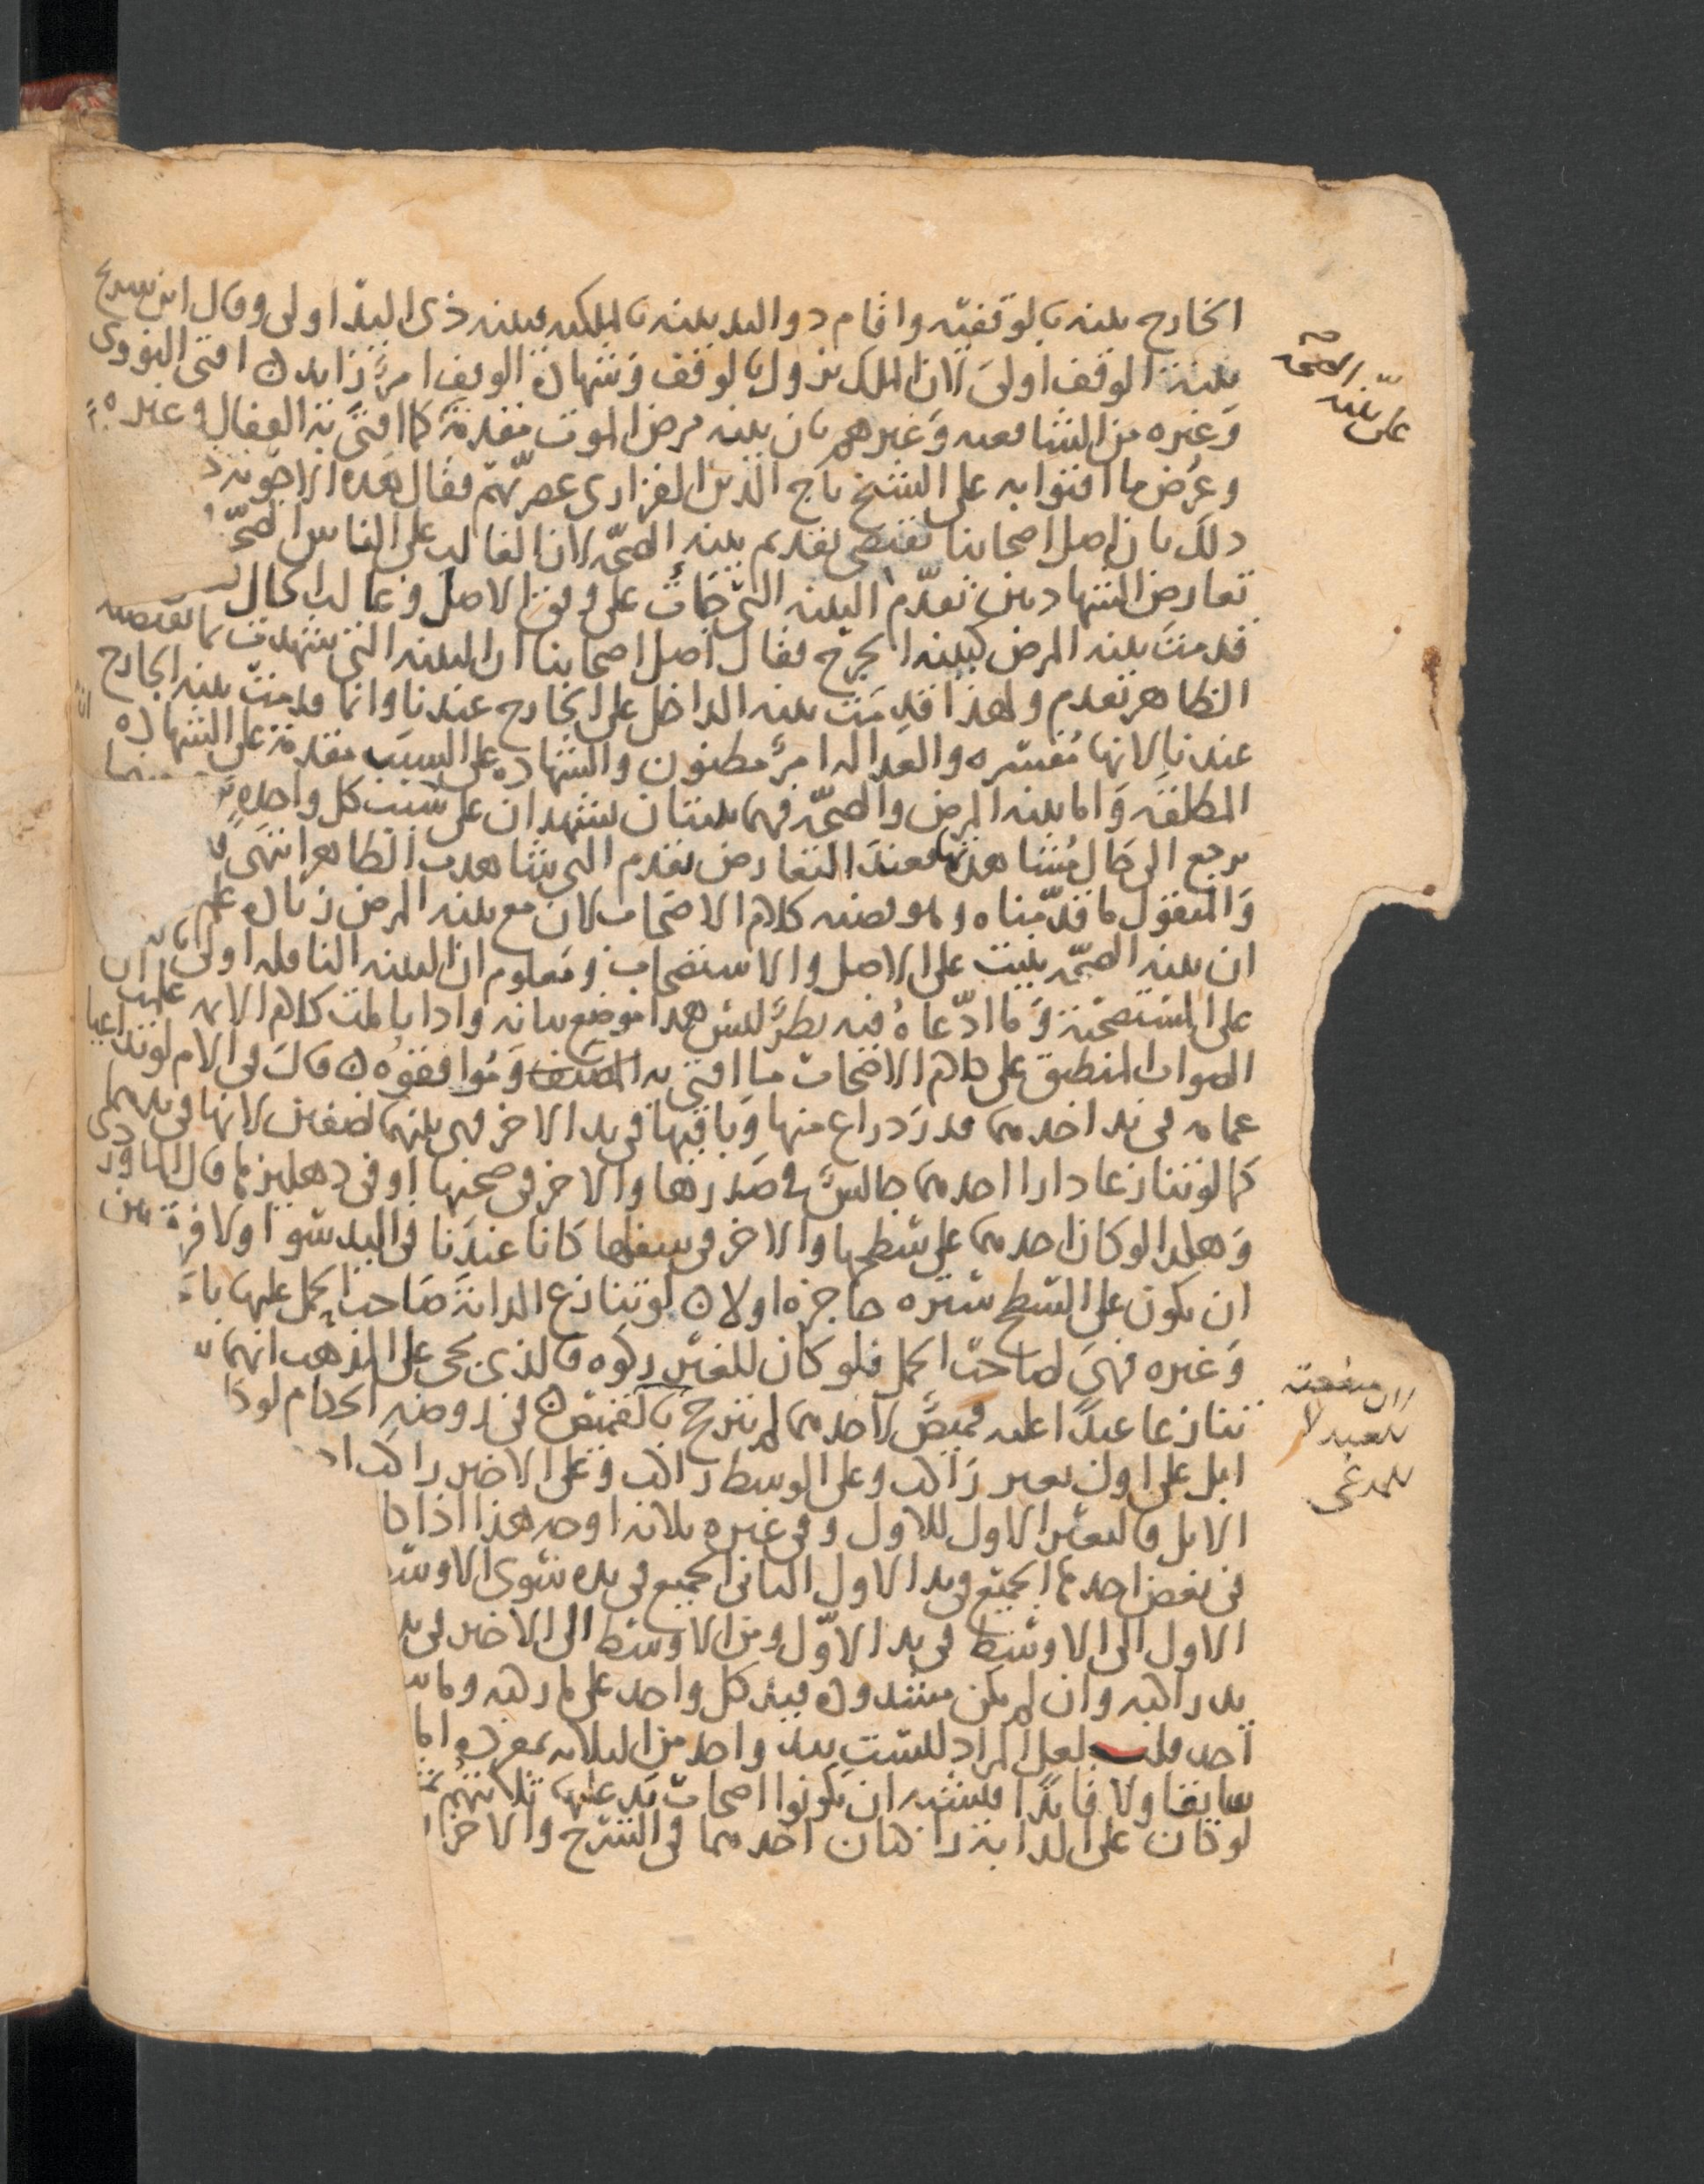 الخارج بينة بالوقفية واقام ذو اليد بينة بالملكية فبينة ذي اليد اولى وقال ابن سريج
بينة الوقف اولى لان الملك يزول بالوقف وشهادة الوقف امر زايد افتى النووي
وغيره من الشافعيه وغيرهم بان بينه مرض الموت مقدمة كما افتى به القفال وغيره
وعرض ما افتوا به على الشيخ تاج الدين الفزاري عصريهم فقال هذه الاجوبه
ذلك بان اصل اصحابنا يقتضي تقديم بينه الصحة لان الغالب على الناس الصحة
تعارض الشهادتين تقدم البينه التي جات على وفق الاصل وغالب الحال
قدمت بينه المرض كبينة الجرح فقال اصل اصحابنا ان البينه التي شهدت بما يقتضيه
الظاهر تقدم ولهذا قدمت بينه الداخل على الخارج عندنا وانما قدمت بينه الجارح
عندنا لانها مفسره والعداله امر مظنون والشهاده على السبب مقدمة على الشهاده
المطلقه واما بينه المرض والصحة فهما بينتان يشهدان على سبب كل واحده
يرجع الى حال مشاهدتها فعند التعارض يقدم التي شاهدت الظاهر انتهى
والمنقول ما قدمناه وهو قضيه كلام الاصحاب لان مع بينه المرض زياده علم
ان بينه الصحة بنيت على الاصل والاستصحاب ومعلوم ان البينه الناقله اولى
على المستصحبة وما ادعاه فيه نظر ليس هذا موضع بيانه واذا تاملت كلام الايمه علمت ان
الصواب المنطبق على كلام الاصحاب ما افتى به المصنف وموافقوه قال في الام لو تداعيا
عمامه في يد احدهما قدر ذراع منها وباقيها في يد الاخر فهي بينهما نصفين لانها في يدهما
كما لو تنازعا دارا احدهما جالس في صدرها والاخر في صحنها او في دهليزها قال الماوردي
وهكذا لو كان احدهما على سطحها والاخر في سفلها كانا عندنا في اليد سوا ولا فرق بين
ان يكون على السطح ستره حاجزه اولا لو تنازع الدابة صاحب الحمل عليها
وغيره فهي لصاحب الحمل فلو كان للغير ركوه فالذي يجي على المذهب انهما
تنازعا عبدا عليه قميص لاحدهما لم يترجح بالقميص في روضه الحكام لو
ابل على اول بعير راكب وعلى الوسط راكب وعلى الاخير راكب
الابل فالبعير الاول للاول وفي غيره ثلاثه اوجه هذا اذا
في بعض احدها الجميع في يد الاول الثاني الجميع في يده سوى الاوسط
الاول الى الاوسط في يد الاول ومن الاوسط الى الاخير في يد
يد راكبه وان لم يكن مشدوده فيد كل واحد على ما ركبه وما
احد قلت لعل المراد ليست بيد واحد من الثلاثه بمفرده اما
سايقا ولا قايدا فيشبه ان يكونوا اصحاب يد عليها ثلاثتهم
لو كان على الدابة راكبان احدهما في السرج والاخر
على بينه الصحة
لان منفعته
للعبد لا
للمدعي